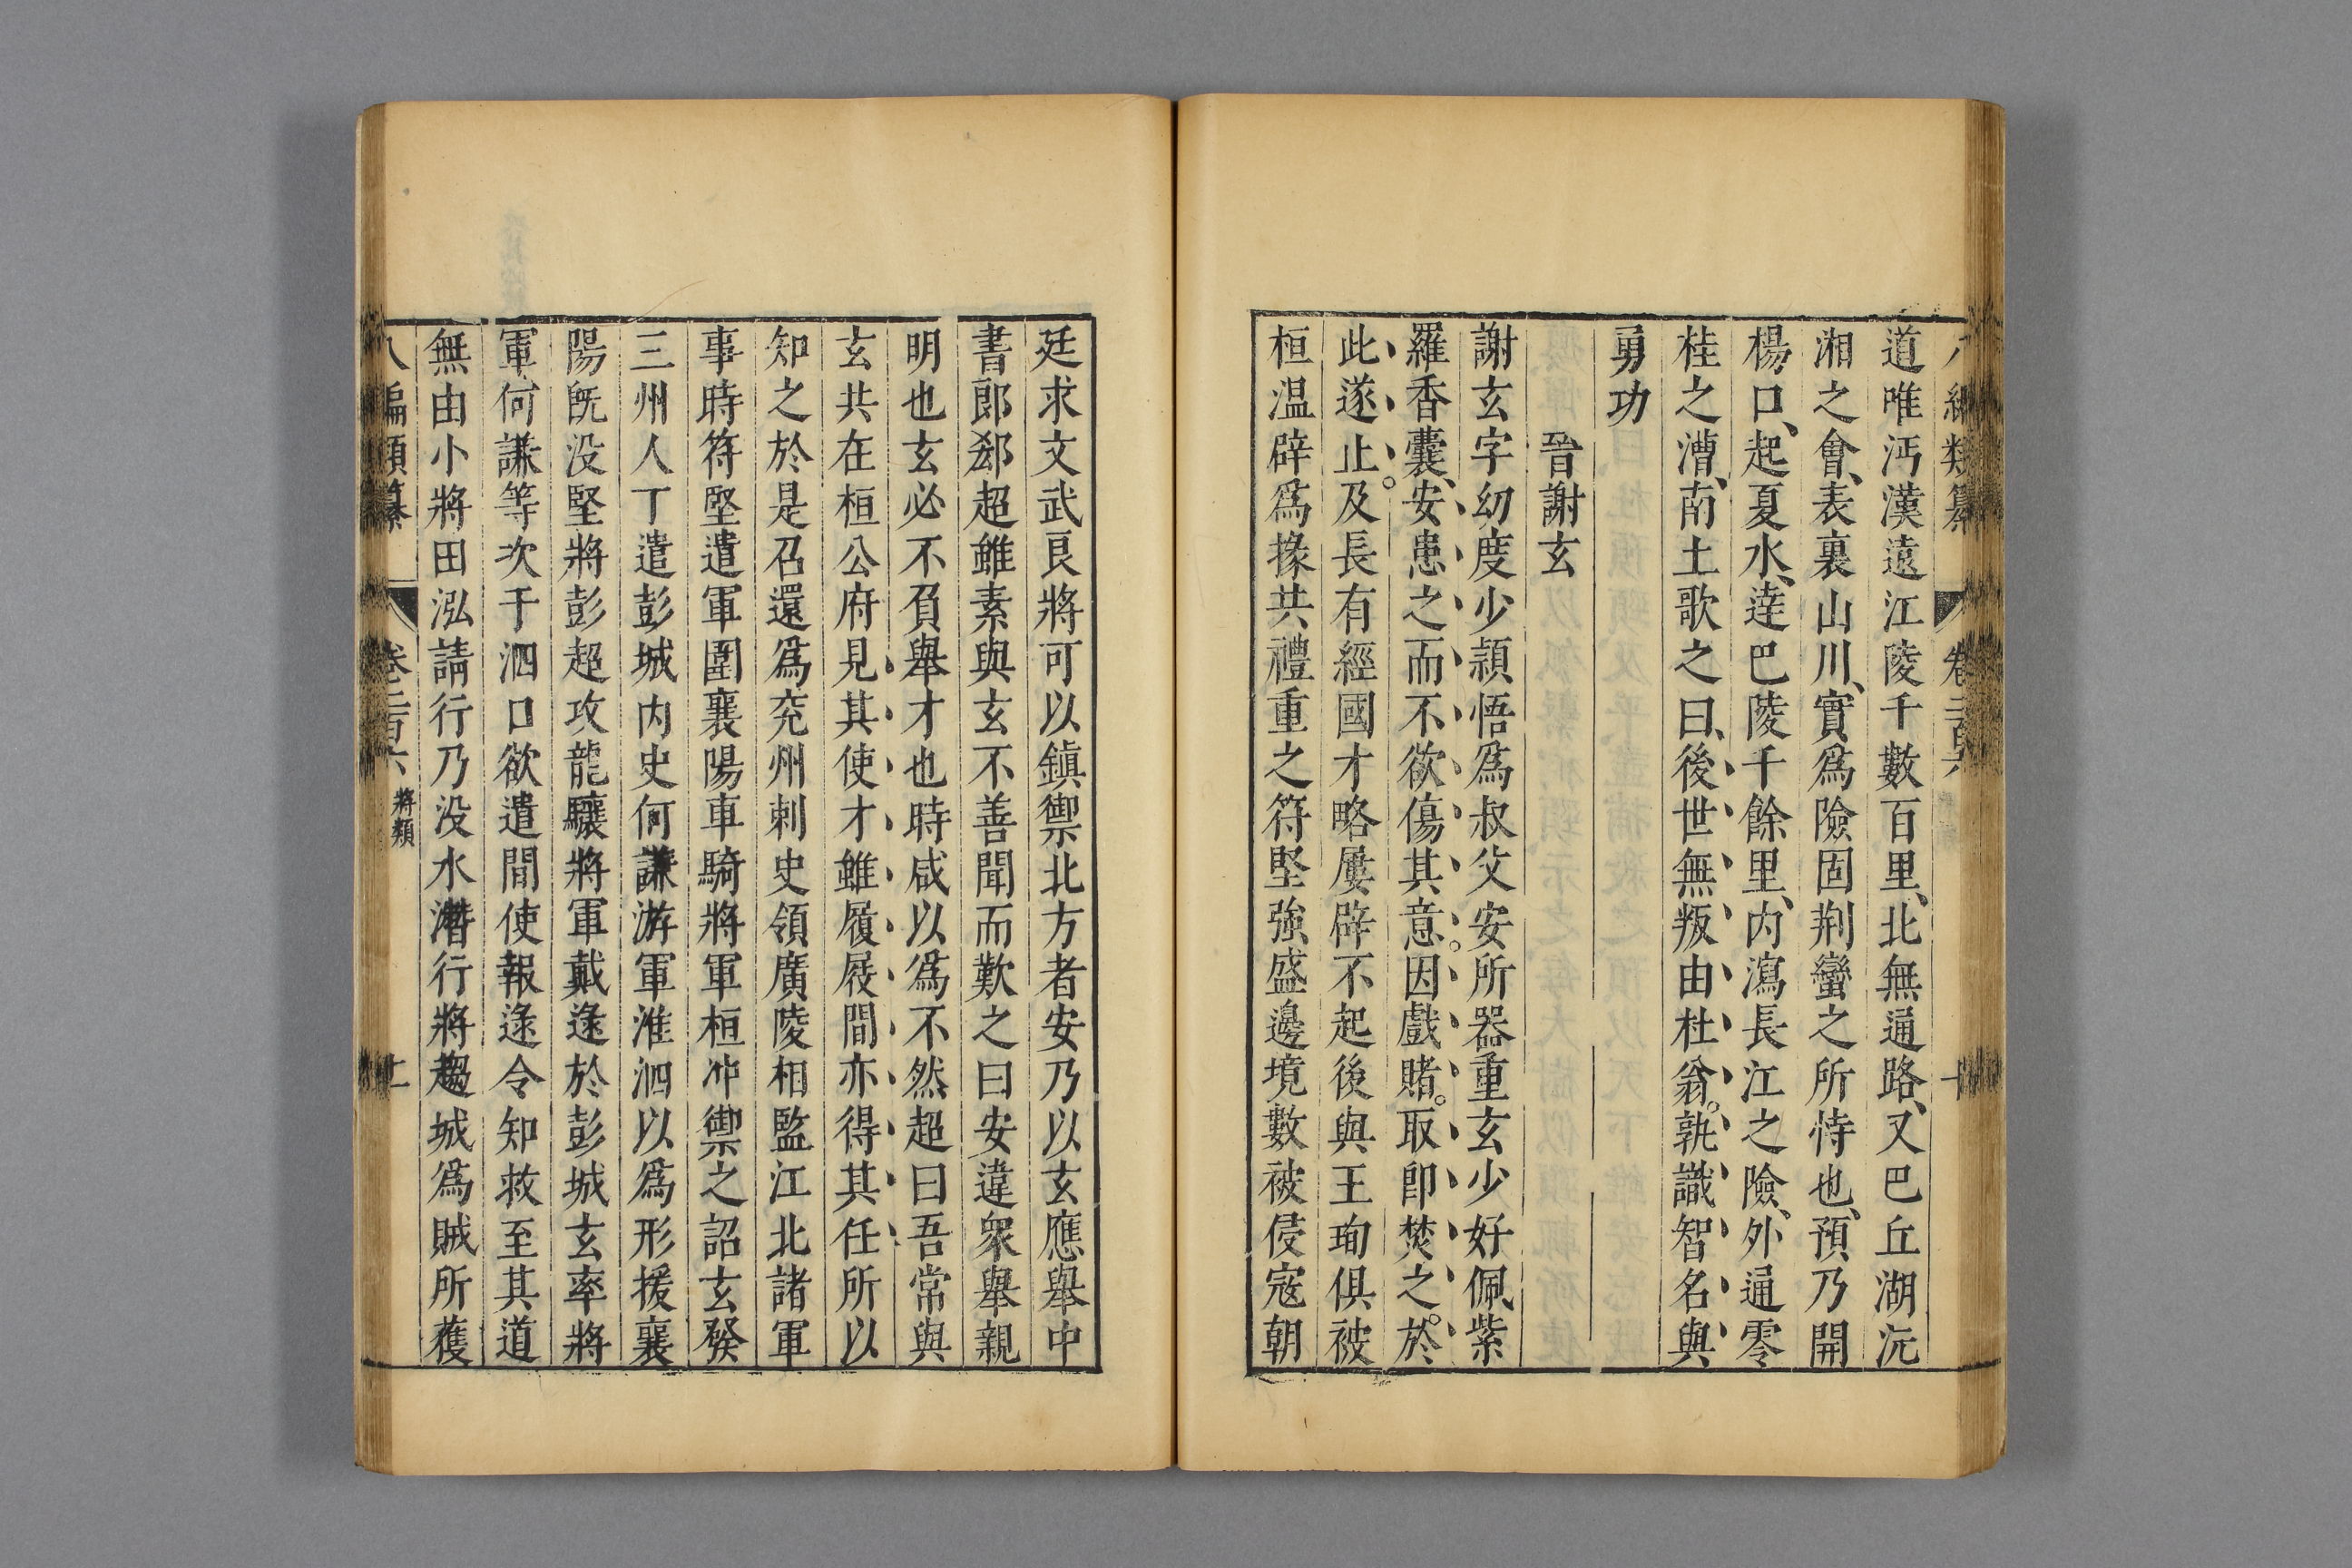 八編類纂 卷二百六 十
道唯沔漢遠江陵千數百里、北無通路、又巴丘湖沅
湘之會、表裏山川、實爲險固荆蠻之所恃也、預乃開
楊口、起夏水、達巴陵千餘里、内瀉長江之險、外通零
桂之漕、南土歌之曰、後世無叛由杜翁。孰識智名與
勇功
晉謝玄
謝玄字幼度少頴悟爲叔父安所器重玄少好佩紫
羅香囊、安患之而不欲傷其意。因戲賭。取卽焚之。於
此遂止。及長有經國才略屢辟不起後與王珣俱被
桓温辟爲掾共禮重之符堅強盛邊境數被侵寇朝
廷求文武良將可以鎭禦北方者安乃以玄應舉中
書郎郄超雖素與玄不善聞而歎之曰安違衆舉親
明也玄必不負舉才也時咸以爲不然超曰吾常與
玄共在桓公府見其使才雖履屐間亦得其任所以
知之於是召還爲兖州刺史領廣陵相監江北諸軍
事時符堅遣軍圍襄陽車騎將軍桓冲禦之詔玄發
三州人丁遣彭城内史何謙游軍淮泗以爲形援襄
陽旣没堅將彭超攻龍驤將軍戴逯於彭城玄率將
軍何謙等次于泗口欲遣間使報逯令知救至其道
無由小將田泓請行乃没水潛行將趨城爲賊所獲
八編類纂 卷二百六 將類 十一